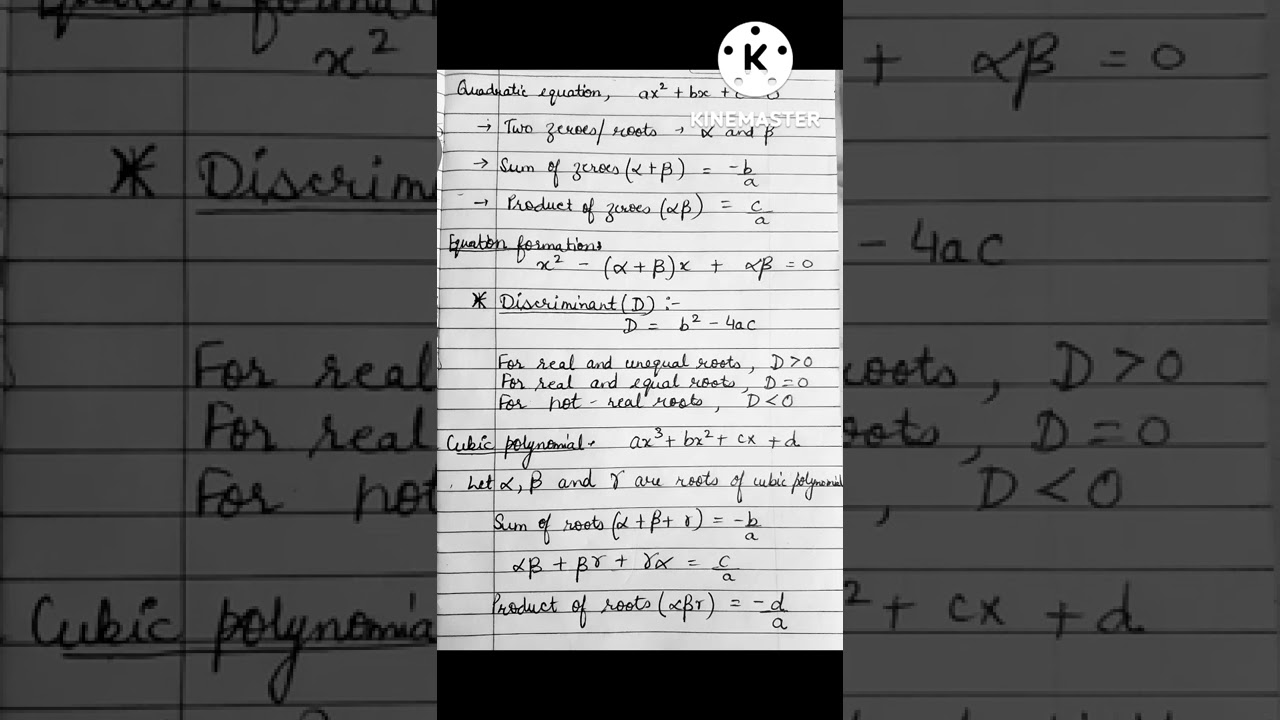 K
KINEMASTER
Quadratic equation, ax² + bx + c = 0
→ Two zeroes/ roots → α and β
→ Sum of zeroes (α+β) = -b/a
→ Product of zeroes (αβ) = c/a
Equation formation:
x² - (α+β)x + αβ = 0
* Discriminant (D) :-
D = b² - 4ac
For real and unequal roots, D>0
For real and equal roots, D=0
For not-real roots, D<0
Cubic polynomial. ax³ + bx² + cx + d
. Let α, β and γ are roots of cubic polynomial
Sum of roots (α+β+γ) = -b/a
αβ + βγ + γα = c/a
Product of roots (αβγ) = -d/a